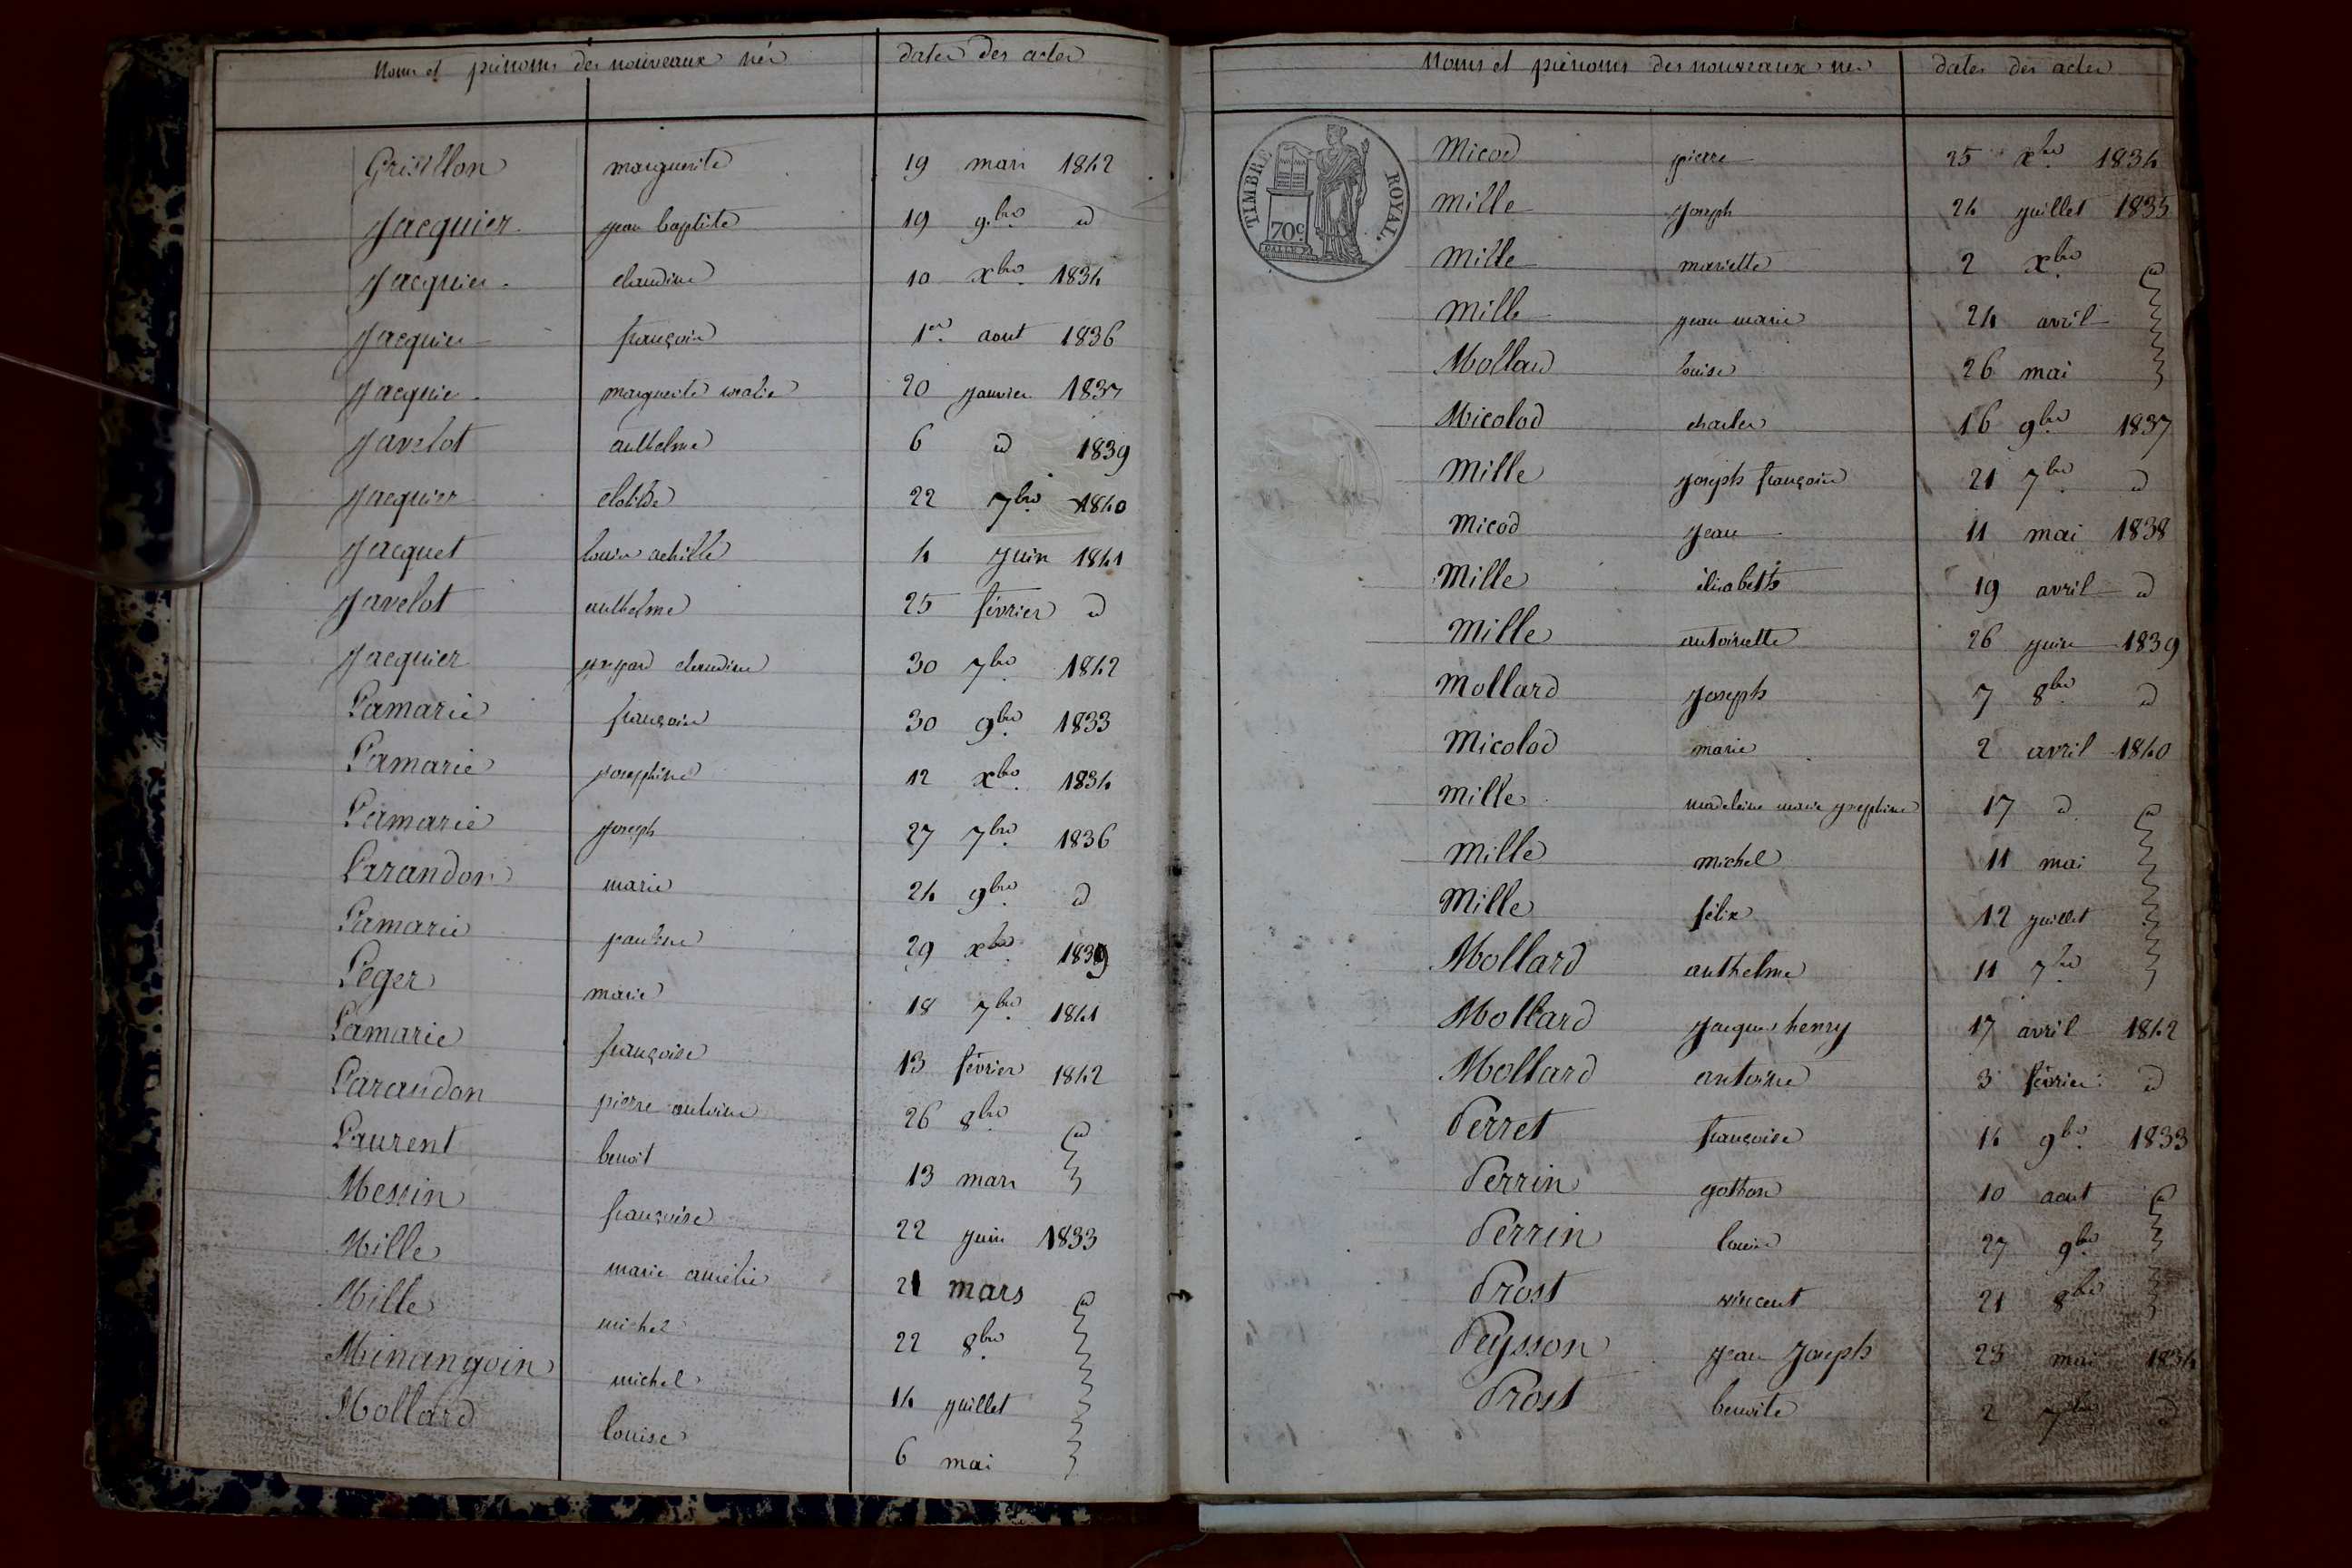 Noms et prénoms des nouveaux nés dates des actes
Grisillon marguerite 19 mars 1842
Jacquier jean baptiste 19 9bre d
Jacquier claudine 10 xbre 1834
Jacquier françois 1er aout 1836
Jacquier marguerite 20 janvier 1837
Javelot anthelme 6 d 1839
Jacquier clotilde 22 7bre 1840
Jacquet louis achille 4 juin 1841
Javelot anthelme 25 février d
Jacquier claudine 30 7bre 1842
Lamarie 30 9bre 1833
Lamarie josephine 12 xbre 1834
Lamarie joseph 27 7bre 1836
Larandon marie 24 9bre d
Lamarie 29 xbre 1839
Leger marie 18 7bre 1841
Lamarie françoise 13 février 1842
Larandon pierre antoine 26 8bre d
Laurent benoit 13 mars
Messin françoise 22 juin 1833
Mille marie amélie 21 mars d
Mille michel 22 8bre
Minangoin michel 14 juillet
Mollard louise 6 mai
Noms et prénoms des nouveaux nés dates des actes
TIMBRE ROYAL.
70c
Micod pierre 25 xbre 1834
Mille joseph 24 juillet 1835
Mille mariette 2 xbre d
Mille jean marie 24 avril
Mollard louise 26 mai
Micolod charles 16 9bre 1837
Mille joseph françois 21 7bre d
Micod jean 11 mai 1838
Mille élisabeth 19 avril d
Mille antoinette 26 juin 1839
Mollard joseph 7 8bre d
Micolod marie 2 avril 1840
Mille madeleine marie josephine 17 d d
Mille michel 11 mai
Mille félix 12 juillet
Mollard anthelme 11 7bre
Mollard jacques henry 17 avril 1842
Mollard antoine 3 février d
Perret françoise 14 9bre 1833
Perrin gothon 10 aout d
Perrin louis 27 9bre
Prost vincent 21 8bre
Peysson jean joseph 23 mai 1834
Prost benoite 2 7bre d